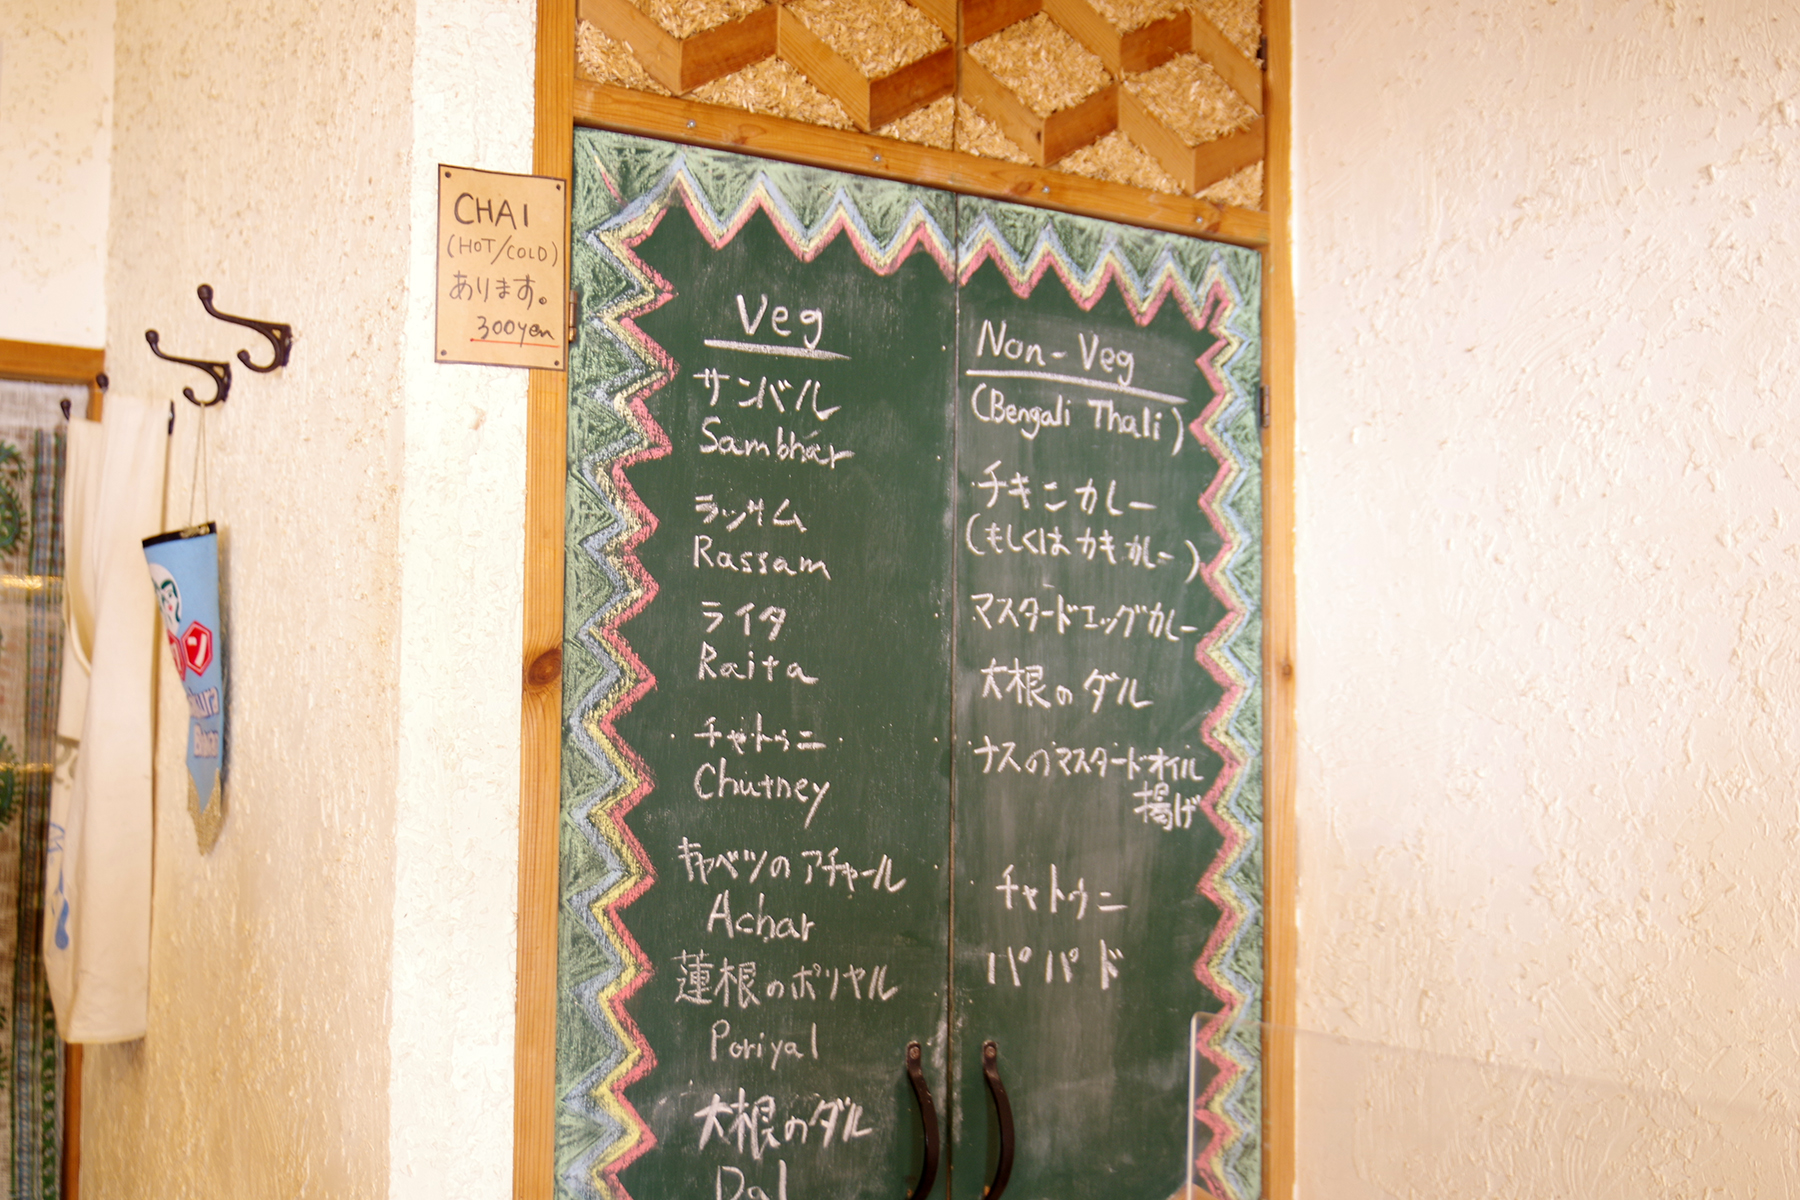 CHAI
(HOT/COLD)
あります。
300yen
Veg
サンバル
Sambhar
ラッサム
Rassam
ライタ
Raita
チャトゥニ
Chutney
キャベツのアチャール
Achar
蓮根のポリヤル
Poriyal
大根のダル
Dal
Non-Veg
(Bengali Thali)
チキンカレー
(もしくはカキカレー)
マスタードエッグカレー
大根のダル
ナスのマスタードオイル
揚げ
チャトゥニ
パパド